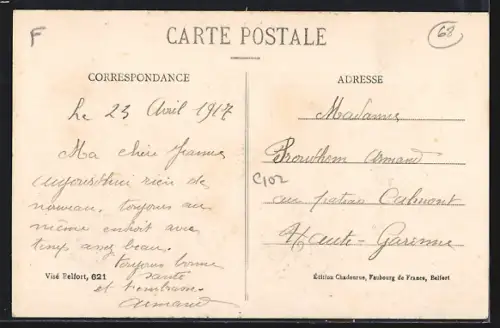 F
68
CARTE POSTALE
CORRESPONDANCE
Le 23 Avril 1917
Ma chère Jeanne
aujourd'hui rien de
nouveau. toujours au
même endroit avec
temps assez beau.
toujours bonne
santé
et t'embrasse
Armand
Visé Belfort, 621
ADRESSE
Madame
Armand
C102
au Calmont
Haute-Garonne
Édition Chadourne, Faubourg de France, Belfort